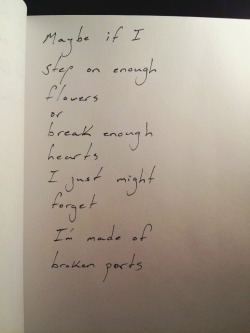 Maybe if I
step on enough
flowers
or
break enough
hearts
I just might
forget
I'm made of
broken parts